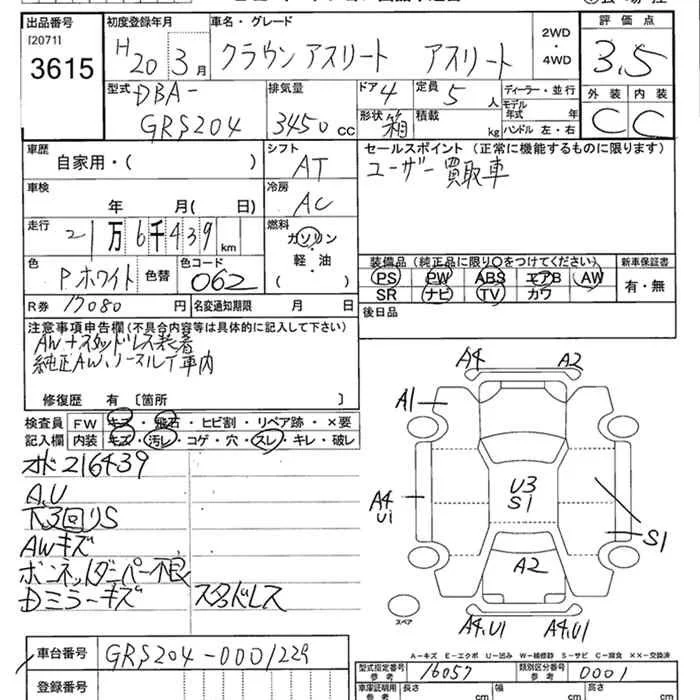 出品番号
[2071]
3615
初度登録年月
H20 3月
車名・グレード
クラウン アスリート アスリート
2WD
・
4WD
評価点
3.5
外装 内装
C C
型式
DBA-
GRS204
排気量
3450 cc
ドア 4
定員 5 人
形状 箱
積載 kg
ディーラー・並行
モデル
年式 年
ハンドル 左・右
車歴
自家用・( )
シフト
AT
セールスポイント (正常に機能するものに限ります)
ユーザー買取車
車検
年 月( 日)
冷房
AC
走行
21万6千439 km
燃料
ガソリン
軽・油
( )
色
Pホワイト
色替
色コード
062
装備品 (純正品に限り○をつけてください)
PS PW ABS エアB AW
SR ナビ TV カワ
新車保証書
有・無
R券 17080 円
名変通知期限 月 日
後日品
注意事項申告欄(不具合内容等は具体的に記入して下さい)
AW+スタッドレス装着
純正AW、ノーマルT車内
修復歴 有〔箇所 〕
検査員
記入欄
FW キズ・飛石・ヒビ割・リペア跡・×要
内装 キズ・汚レ・コゲ・穴・スレ・キレ・破レ
オド216439
A.U
下3回りS
AWキズ
ボンネットダンパー不良
Dミラーキズ スタッドレス
A4 A2
A1
A4
U1
U3
S1
S1
A2
A4.U1 A4.U1
スペア
A-キズ E-エクボ U-凹み W-補修跡 S-サビ C-腐食 XX-交換済
車台番号
GRS204-0001229
登録番号
型式指定番号
参考
16057
類別区分番号
参考
0001
車庫証明用
参考
長さ cm
幅 cm
高さ cm